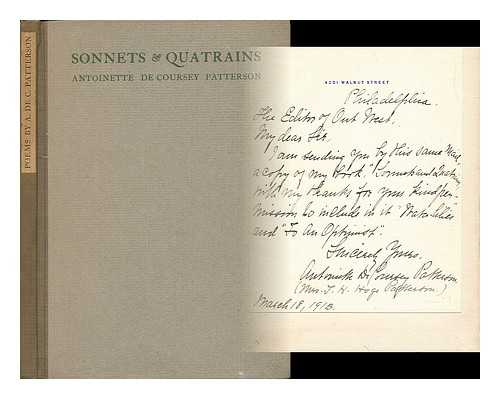 POEMS BY A. DE C. PATTERSON
SONNETS & QUATRAINS
ANTOINETTE DE COURSEY PATTERSON
WALNUT STREET
Philadelphia.
The Editor of Out West.
My dear Sir,
I am sending you by this same Mail
a copy of my book, "Sonnets and Quatrains,
with my thanks for your kind per-
mission to include in it "Water Lilies
and "To An Optimist".
Sincerely Yours,
Antoinette De Coursey Patterson
(Mrs. T. H. Hoge Patterson.)
March 18, 1913.